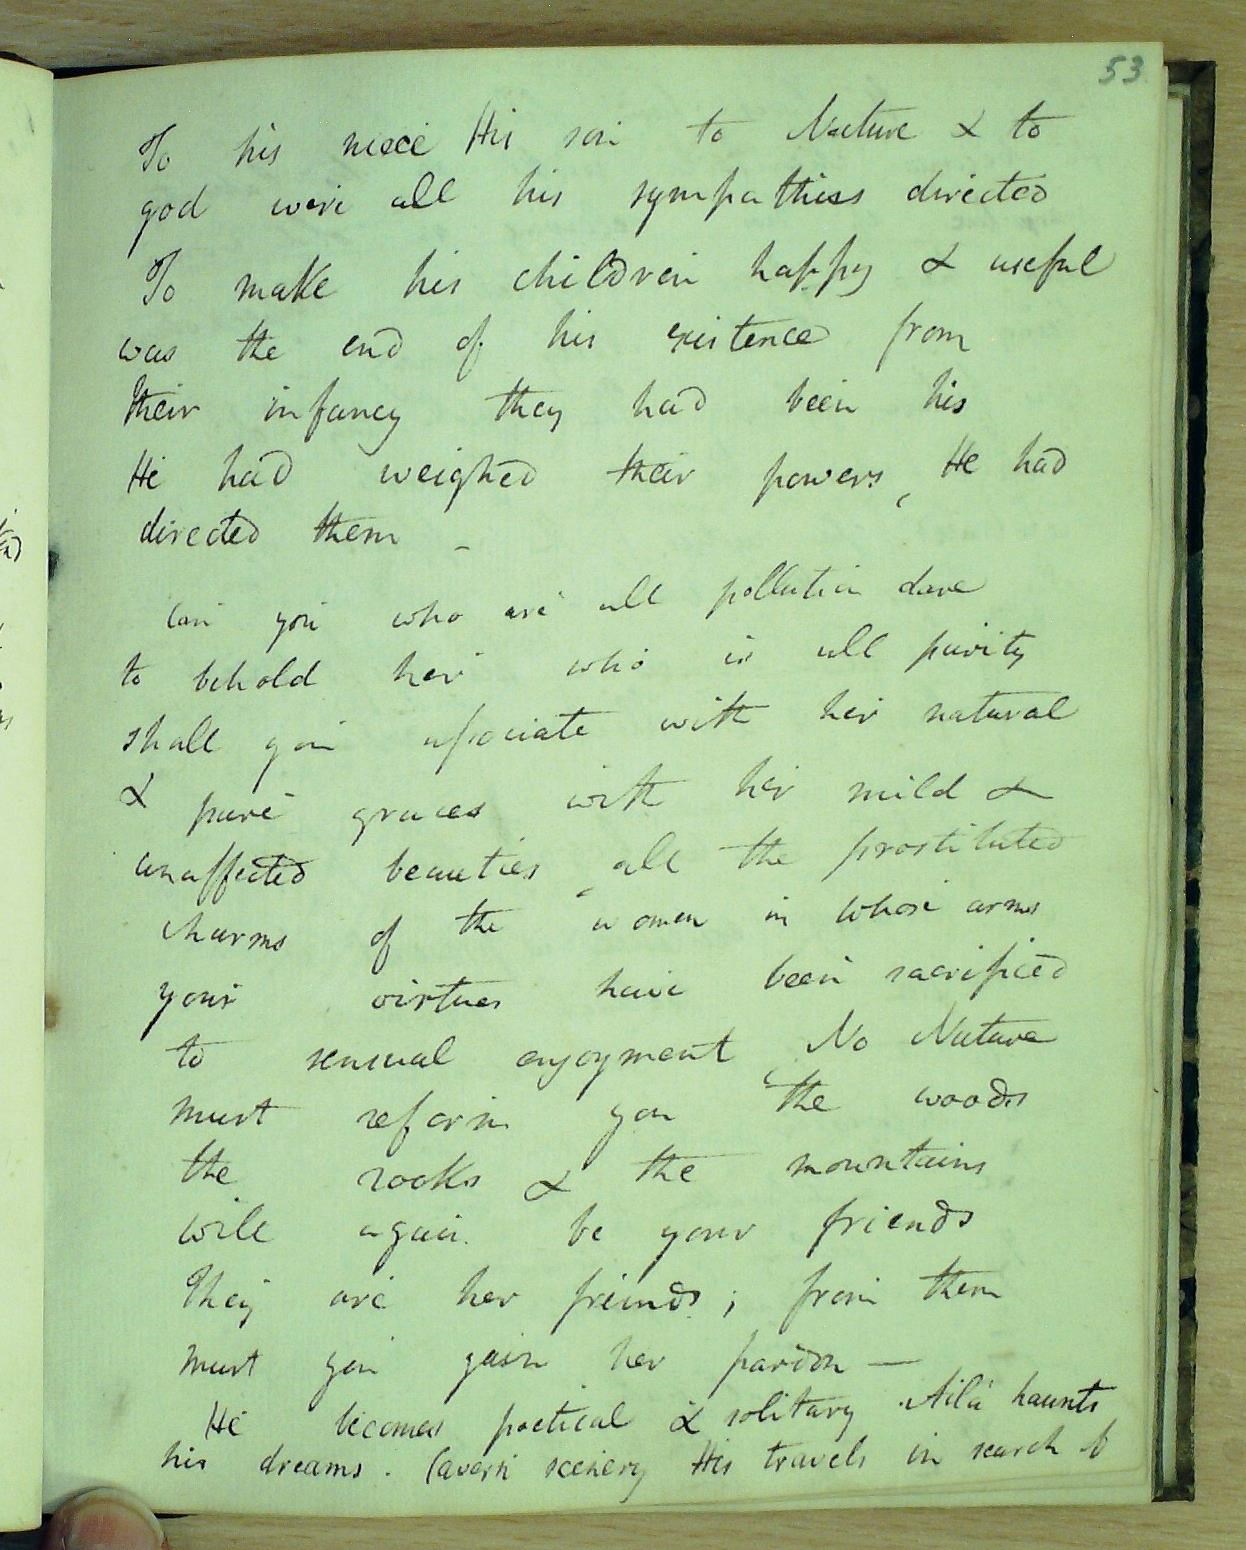 53
To his niece His son to Nature & to
god were all his sympathies directed
To make his children happy & useful
was the end of his existence from
their infancy they had been his
He had weighed their powers, He had
directed them –
Can you who are all pollution dare
to behold her who is all purity
shall you associate with her natural
& pure graces with her mild &
unaffected beauties, all the prostituted
charms of the women in whose arms
your virtues have been sacrificed
to sensual enjoyment, No Nature
must reform you the woods
the rocks & the mountains
will again be your friends
They are her friends; from them
must you gain her pardon —
He becomes poetical & solitary. Aila haunts
his dreams. Cavern scenery His travels in search of